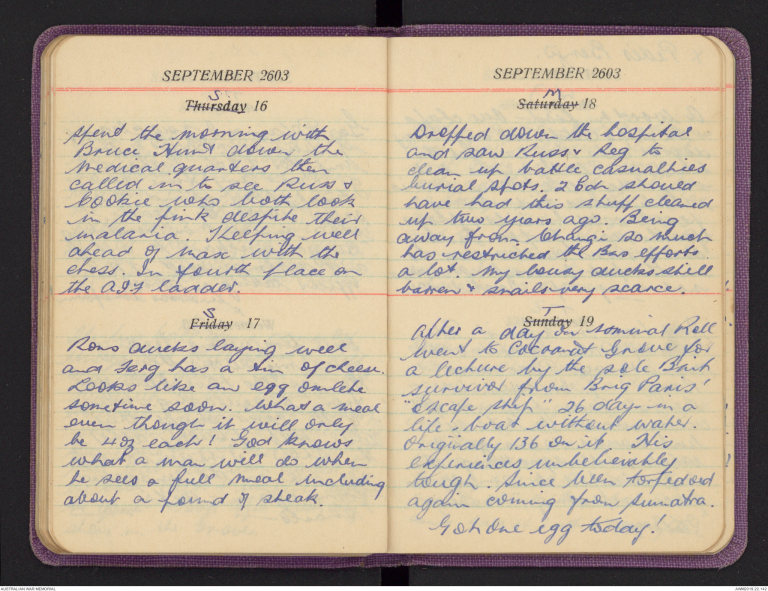 SEPTEMBER 2603
S
Thursday 16
Spent the morning with
Bruce Hunt down the
Medical quarters then
called in to see Russ &
Cookie who both look
in the pink despite their
malaria. Keeping well
ahead of Max with the
chess. In fourth place on
the AIF ladder.
S
Friday 17
Rons ducks laying well
and Ferg has a tin of cheese.
Looks like an egg omlette
sometime soon. What a meal
even though it will only
be 4oz each! God knows
what a man will do when
he sees a full meal including
about a pound of steak.
SEPTEMBER 2603
M
Saturday 18
Dropped down the hospital
and saw Russ & Reg to
clean up battle casualties
burial spots. 2 Edn should
have had this stuff cleaned
up two years ago. Being
away from Changi so much
has restricted the Bns efforts
a lot. My lousy ducks still
barren & snails very scarce.
T
Sunday 19
After a day on nominal Roll
went to Cocoanut Grove for
a lecture by the sole Brit
survivor from Brig Paris'
"escape ship" 26 days in a
life-boat without water.
Originally 136 on it. His
experiences unbelievably
tough. Since been torpedoed
again coming from Sumatra.
Got one egg today!
AUSTRALIAN WAR MEMORIAL
AWM2019.22.142